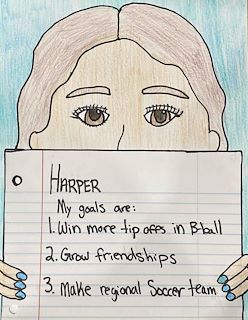 HARPER
My goals are:
1. Win more tip offs in B-ball
2. Grow friendships
3. Make regional Soccer team